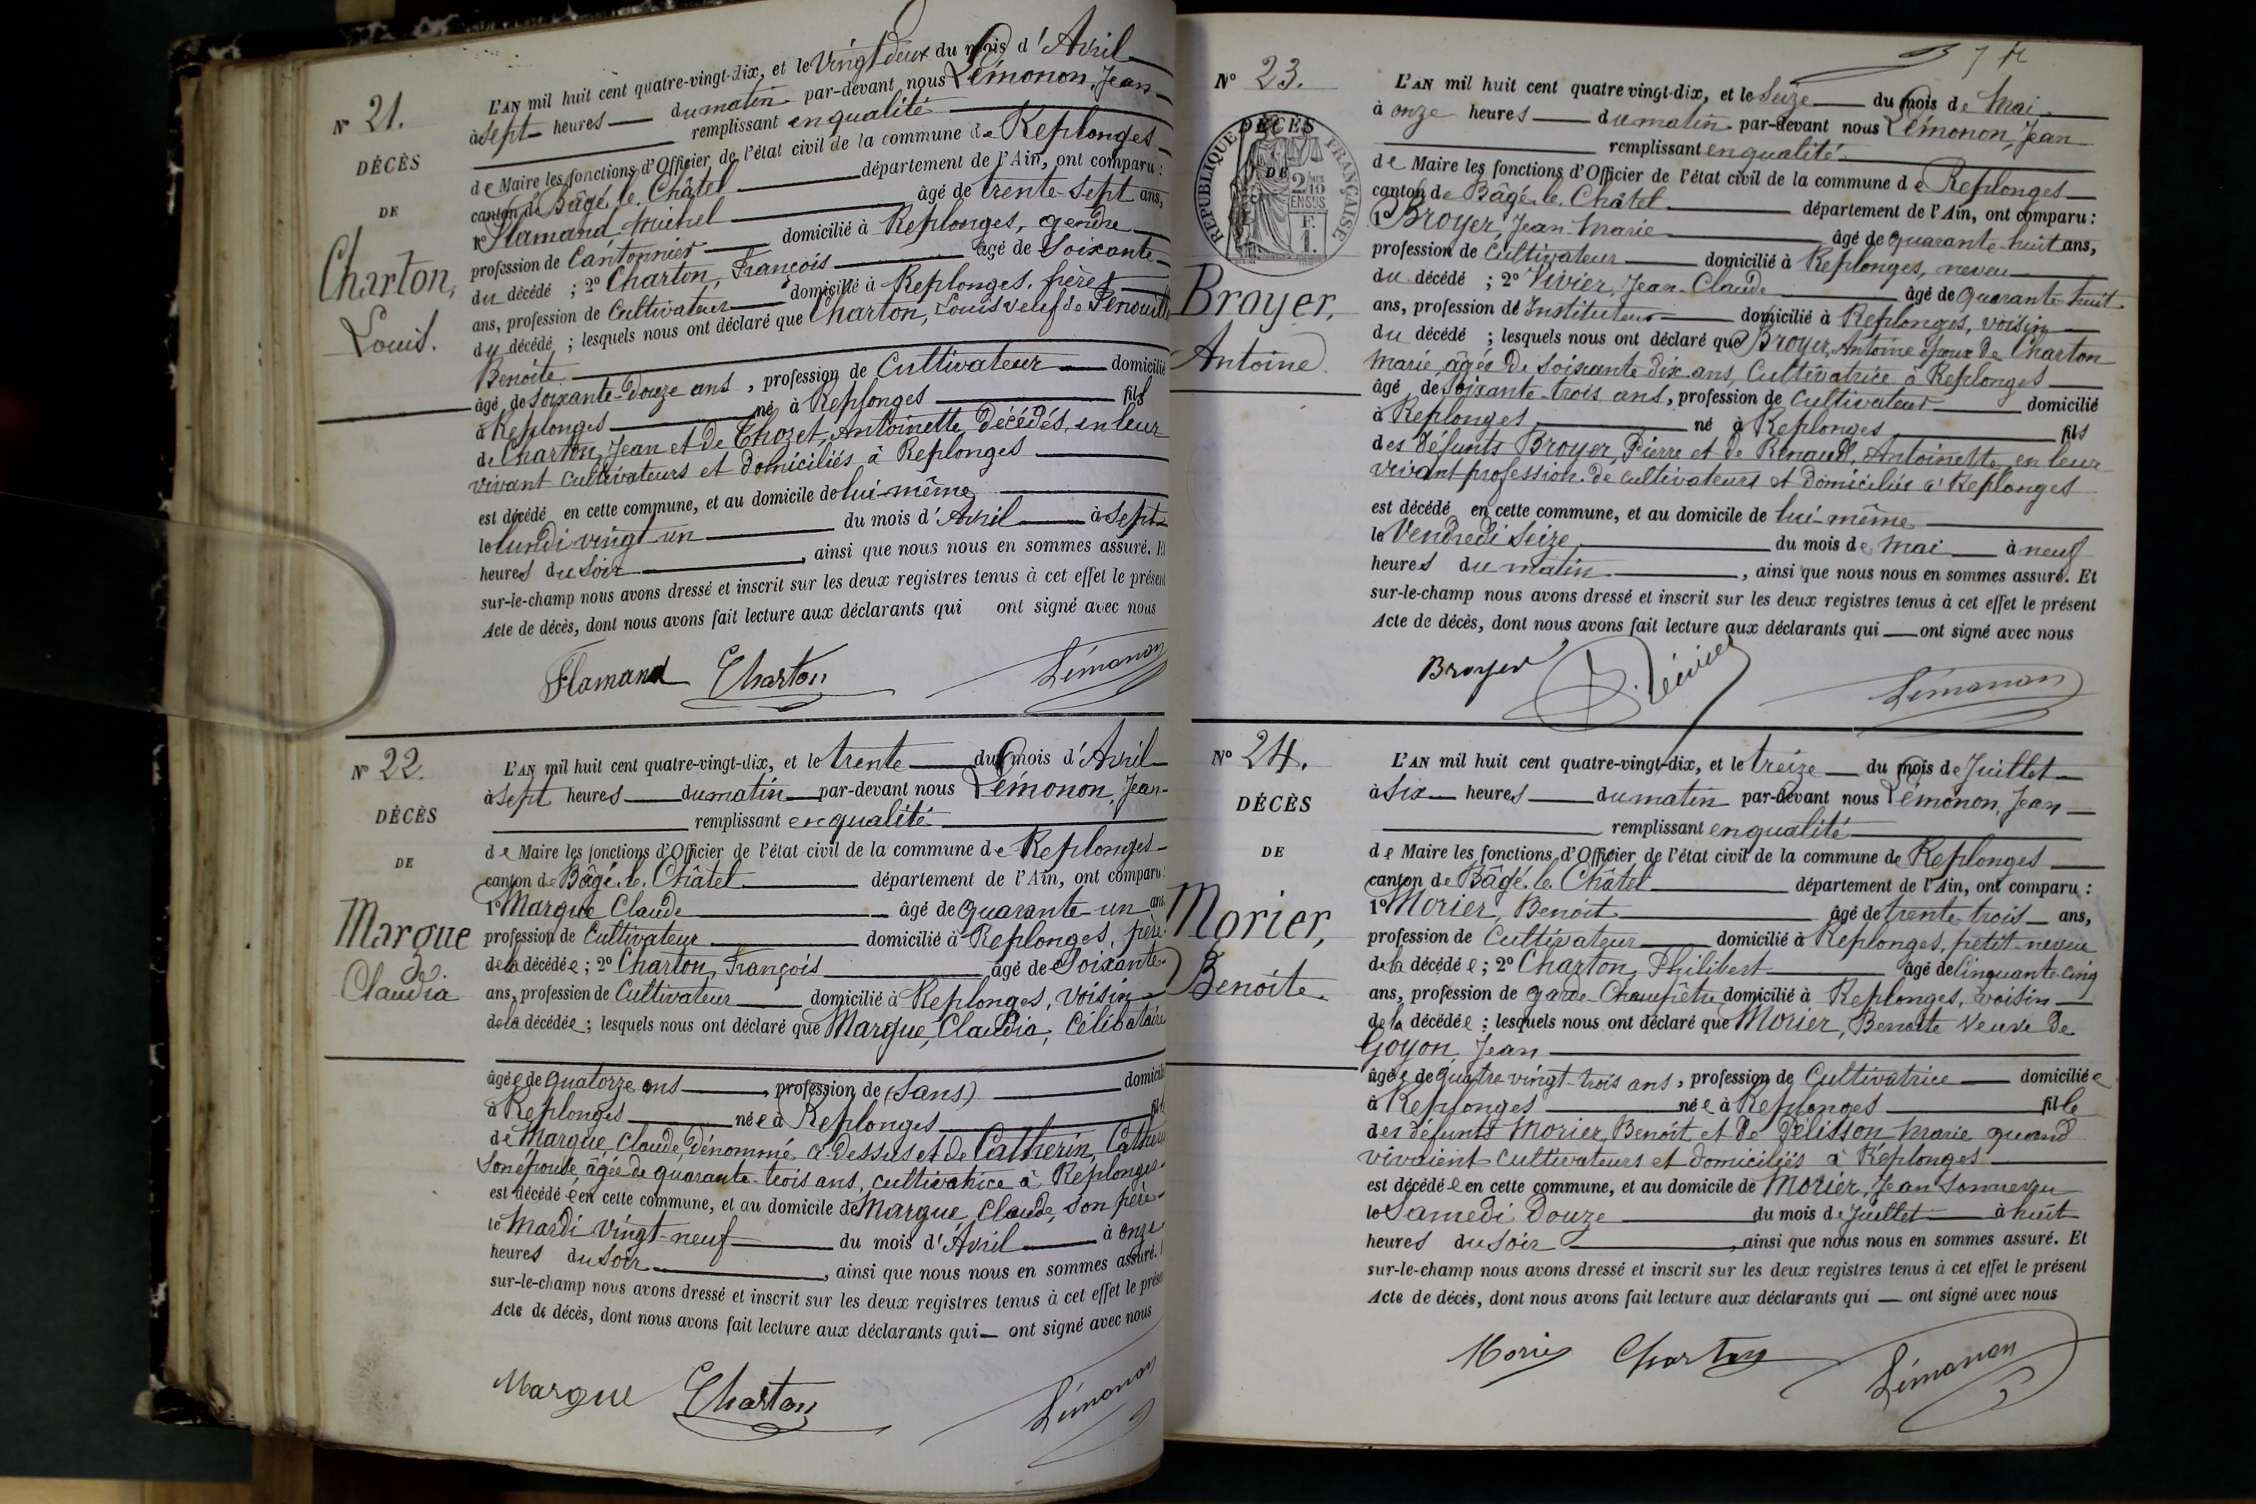 N° 21.
DÉCÈS
DE
Charton,
Louis.
L'AN mil huit cent quatre-vingt-dix, et le Vingt deux du mois d'Avril
à sept heures du matin par-devant nous Lémonon, Jean
remplissant en qualité
de Maire les fonctions d'Officier de l'état civil de la commune de Replonges
canton de Bâgé-le-Châtel département de l'Ain, ont comparu :
1° Flamand Michel âgé de trente-sept ans,
profession de Cantonnier domicilié à Replonges, gendre
du décédé ; 2° Charton, François âgé de Soixante
ans, profession de Cultivateur domicilié à Replonges, frère
du décédé ; lesquels nous ont déclaré que Charton, Louis veuf de
Benoite
âgé de soixante-douze ans, profession de Cultivateur domicilié
à Replonges né à Replonges fils
de Charton, Jean et de Chozet, Antoinette, décédés, en leur
vivant cultivateurs et domiciliés à Replonges
est décédé en cette commune, et au domicile de lui-même
le lundi vingt-un du mois d'Avril à sept
heures du soir, ainsi que nous nous en sommes assuré. Et
sur-le-champ nous avons dressé et inscrit sur les deux registres tenus à cet effet le présent
Acte de décès, dont nous avons fait lecture aux déclarants qui ont signé avec nous
Flamand Charton Lémonon
N° 22.
DÉCÈS
DE
Margue
Claudia
L'AN mil huit cent quatre-vingt-dix, et le trente du mois d'Avril
à sept heures du matin par-devant nous Lémonon, Jean
remplissant en qualité
de Maire les fonctions d'Officier de l'état civil de la commune de Replonges
canton de Bâgé-le-Châtel département de l'Ain, ont comparu :
1° Margue Claude âgé de quarante-un ans
profession de Cultivateur domicilié à Replonges, père
de la décédée ; 2° Charton, François âgé de Soixante
ans, profession de Cultivateur domicilié à Replonges, voisin
de la décédée ; lesquels nous ont déclaré que Margue, Claudia, Célibataire
âgée de quatorze ans, profession de (Sans) domicilié
à Replonges née à Replonges fille
de Margue, Claude, dénommé ci-dessus et de Catherin,
Son épouse, âgée de quarante-trois ans, cultivatrice à Replonges
est décédée en cette commune, et au domicile de Margue, Claude, son père
le Mardi vingt-neuf du mois d'Avril à onze
heures du soir, ainsi que nous nous en sommes assuré.
sur-le-champ nous avons dressé et inscrit sur les deux registres tenus à cet effet le présent
Acte de décès, dont nous avons fait lecture aux déclarants qui ont signé avec nous
Margue Charton Lémonon
N° 23.
RÉPUBLIQUE FRANÇAISE
2/10 EN SUS
F. 1.
DÉCÈS
DE
Broyer,
Antoine.
L'AN mil huit cent quatre vingt-dix, et le Seize du mois de Mai
à onze heures du matin par-devant nous Lémonon, Jean
remplissant en qualité
de Maire les fonctions d'Officier de l'état civil de la commune de Replonges
canton de Bâgé-le-Châtel département de l'Ain, ont comparu :
1° Broyer, Jean-Marie âgé de quarante-huit ans,
profession de Cultivateur domicilié à Replonges, neveu
du décédé ; 2° Vivier, Jean-Claude âgé de quarante-huit
ans, profession de Instituteur domicilié à Replonges, voisin
du décédé ; lesquels nous ont déclaré que Broyer, Antoine époux de Charton
Marie, âgée de soixante dix ans, Cultivatrice à Replonges
âgé de soixante-trois ans, profession de Cultivateur domicilié
à Replonges né à Replonges fils
des défunts Broyer, Pierre et de Renaud, Antoinette, en leur
vivant profession de cultivateurs et domiciliés à Replonges
est décédé en cette commune, et au domicile de lui-même
le Vendredi seize du mois de Mai à neuf
heures du matin, ainsi que nous nous en sommes assuré. Et
sur-le-champ nous avons dressé et inscrit sur les deux registres tenus à cet effet le présent
Acte de décès, dont nous avons fait lecture aux déclarants qui ont signé avec nous
Broyer Vivier Lémonon
N° 24.
DÉCÈS
DE
Morier,
Benoite.
L'AN mil huit cent quatre-vingt-dix, et le treize du mois de Juillet
à six heures du matin par-devant nous Lémonon, Jean
remplissant en qualité
de Maire les fonctions d'Officier de l'état civil de la commune de Replonges
canton de Bâgé-le-Châtel département de l'Ain, ont comparu :
1° Morier, Benoit âgé de trente-trois ans,
profession de Cultivateur domicilié à Replonges, petit-neveu
de la décédée ; 2° Charton, Philibert âgé de cinquante-cinq
ans, profession de garde-Champêtre domicilié à Replonges, voisin
de la décédée ; lesquels nous ont déclaré que Morier, Benoite veuve de
Goyon, Jean
âgée de quatre vingt-trois ans, profession de Cultivatrice domiciliée
à Replonges née à Replonges fille
des défunts Morier, Benoit et de Pélisson Marie quand
vivaient cultivateurs et domiciliés à Replonges
est décédée en cette commune, et au domicile de Morier, Jean son neveu
le Samedi Douze du mois de Juillet à huit
heures du soir, ainsi que nous nous en sommes assuré. Et
sur-le-champ nous avons dressé et inscrit sur les deux registres tenus à cet effet le présent
Acte de décès, dont nous avons fait lecture aux déclarants qui ont signé avec nous
Morier Charton Lémonon